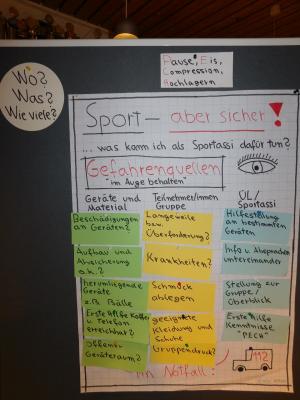 Pause, Eis,
Compression,
Hochlagern
Wo?
Was?
Wie viele?
Sport – aber sicher!
... was kann ich als Sportassi dafür tun?
Gefahrenquellen
"im Auge behalten"
Geräte und
Material
Teilnehmer/innen
Gruppe
ÜL/
Sportassi
Beschädigungen
an Geräten?
Langeweile
bzw.
Überforderung?
Hilfestellung an
bestimmten
Geräten
Aufbau und
Absicherung
o.k.?
Krankheiten?
Info u. Absprachen
untereinander
herumliegende
Geräte
z.B. Bälle
Schmuck
ablegen
Stellung zur
Gruppe/
Überblick
Erste Hilfe Koffer
u. Telefon
erreichbar?
geeignete
Kleidung und
Schuhe
Erste Hilfe
Kenntnisse
"PECH"
offener
Geräteraum?
Gruppendruck?
Im Notfall:
112